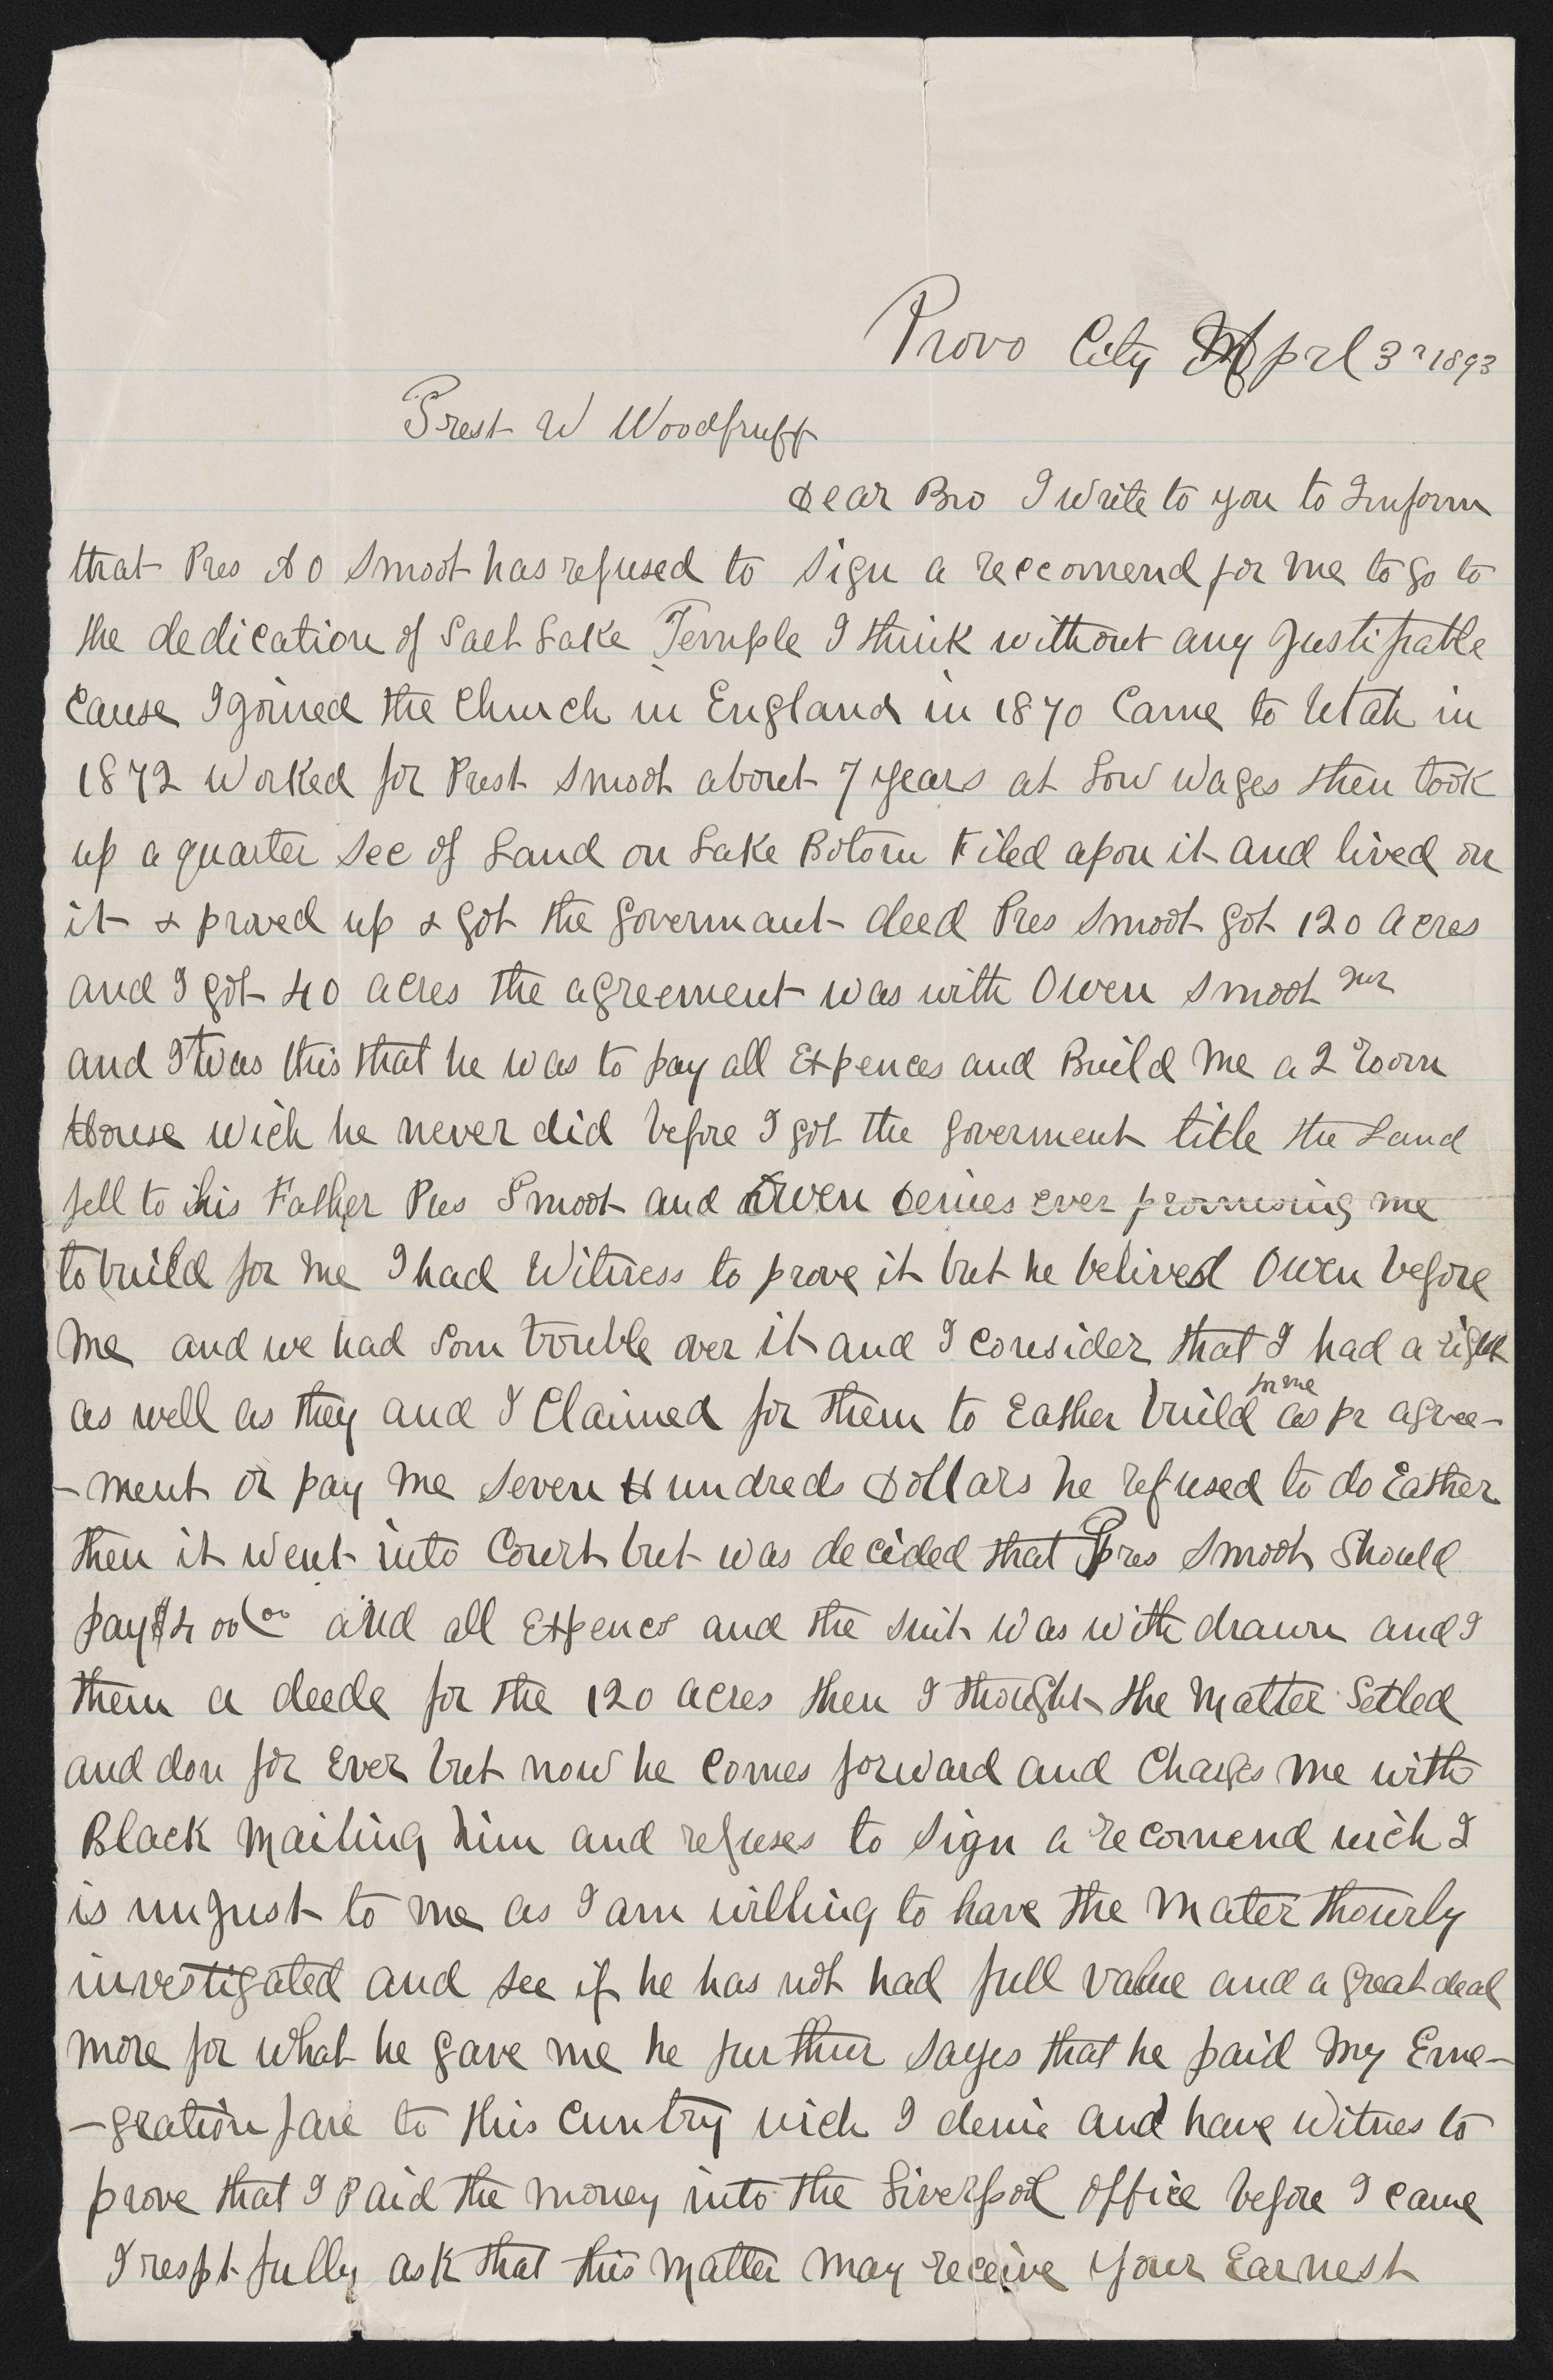 Provo City Aprl 3rd 1893
Prest W Woodfruff
Dear Bro I write to you to Imform
that Pres A O Smoot has refused to sign a reccomend for me to go to
the dedication of Salt Lake Temple I think without any Justifiable
Cause I joined the Church in England in 1870 Came to Utah in
1872 Worked for Prest Smoot about 7 years at Low wages then took
up a quarter sec of Land on Lake Botom Filed apon it and lived on
it & proved up & got the govermant deed Pres Smoot got 120 acres
and I got 40 acres the agreement was with Owen Smoot
and Itwas this that he was to pay all Expences and Build me a 2 room
House wich he never did before I got the goverment title the Land
fell to his Father Pres Smoot and Owen Denies ever promising me
to build for me I had Witness to prove it but he belived Owen before
me and we had Som trouble over it and I consider that I had a right
as well as they and I Claimed for them to Eather build for me as pr agree-
-ment or pay me Seven Hundreds Dollars he refused to do Eather
then it went into Court but was decided that Pres Smoot Should
pay $400 00 and all Expence and the suit was with drawn and I
them a deede for the 120 acres then I thought the Matter Setled
and don for Ever but now he Comes forward and Charges me with
Black Mailing him and refuses to sign a recomend wich I
is unjust to me as I am willing to have the Mater thourly
investigated and see if he has not had full value and a great deal
more for what he gave me he further sayes that he paid My Eme-
-gration fare to this Cuntry wich I denie and have Witnes to
prove that I Paid the money into the Liverpool Office before I came
I respt-fully ask that this Matter May receive Your Earnest